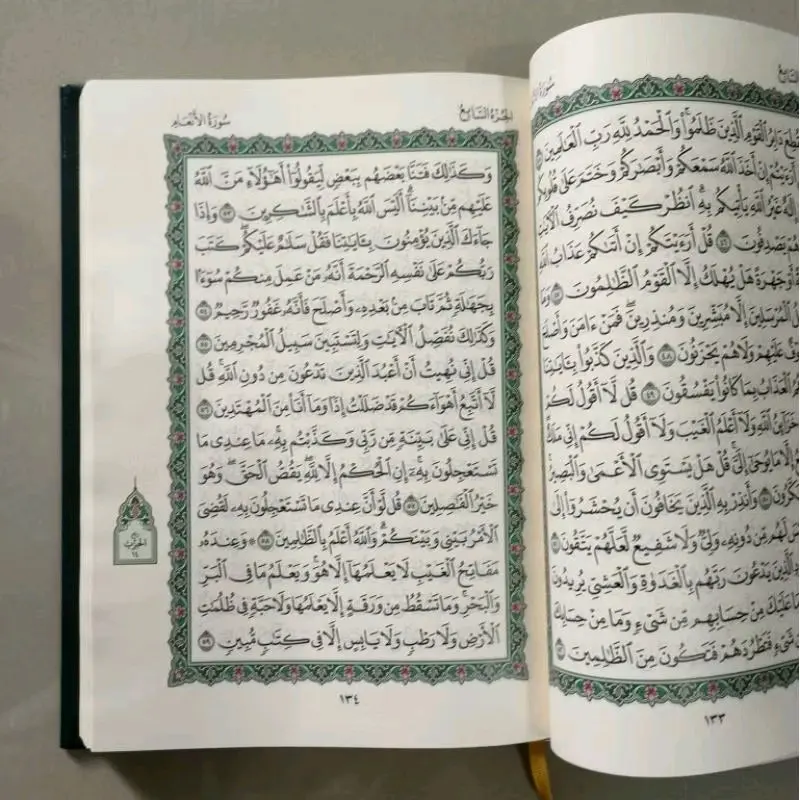 سُورَةُ
دَابِرُ ٱلْقَوْمِ ٱلَّذِينَ ظَلَمُوا۟ ۚ وَٱلْحَمْدُ لِلَّهِ رَبِّ ٱلْعَـٰلَمِينَ
أَرَءَيْتُمْ إِنْ أَخَذَ ٱللَّهُ سَمْعَكُمْ وَأَبْصَـٰرَكُمْ وَخَتَمَ عَلَىٰ قُلُوبِكُم
إِلَـٰهٌ غَيْرُ ٱللَّهِ يَأْتِيكُم بِهِ ۗ ٱنظُرْ كَيْفَ نُصَرِّفُ ٱلْـَٔايَـٰتِ
هُمْ يَصْدِفُونَ ٤٦ قُلْ أَرَءَيْتَكُمْ إِنْ أَتَىٰكُمْ عَذَابُ ٱللَّهِ
أَوْ جَهْرَةً هَلْ يُهْلَكُ إِلَّا ٱلْقَوْمُ ٱلظَّـٰلِمُونَ ٤٧ وَمَا
ٱلْمُرْسَلِينَ إِلَّا مُبَشِّرِينَ وَمُنذِرِينَ ۖ فَمَنْ ءَامَنَ وَأَصْلَحَ
عَلَيْهِمْ وَلَا هُمْ يَحْزَنُونَ ٤٨ وَٱلَّذِينَ كَذَّبُوا۟ بِـَٔايَـٰتِنَا
ٱلْعَذَابُ بِمَا كَانُوا۟ يَفْسُقُونَ ٤٩ قُل لَّآ أَقُولُ لَكُمْ
خَزَآئِنُ ٱللَّهِ وَلَآ أَعْلَمُ ٱلْغَيْبَ وَلَآ أَقُولُ لَكُمْ إِنِّى مَلَكٌ
إِلَّا مَا يُوحَىٰٓ إِلَىَّ ۚ قُلْ هَلْ يَسْتَوِى ٱلْأَعْمَىٰ وَٱلْبَصِيرُ
٥٠ وَأَنذِرْ بِهِ ٱلَّذِينَ يَخَافُونَ أَن يُحْشَرُوٓا۟ إِلَىٰ
لَهُم مِّن دُونِهِۦ وَلِىٌّ وَلَا شَفِيعٌ لَّعَلَّهُمْ يَتَّقُونَ ٥١
ٱلَّذِينَ يَدْعُونَ رَبَّهُم بِٱلْغَدَوٰةِ وَٱلْعَشِىِّ يُرِيدُونَ
مَا عَلَيْكَ مِنْ حِسَابِهِم مِّن شَىْءٍ وَمَا مِنْ حِسَابِكَ
شَىْءٍ فَتَطْرُدَهُمْ فَتَكُونَ مِنَ ٱلظَّـٰلِمِينَ ٥٢
١٣٣
الجزء السابع
سُورَةُ الأَنْعَامِ
وَكَذَٰلِكَ فَتَنَّا بَعْضَهُم بِبَعْضٍ لِّيَقُولُوٓا۟ أَهَـٰٓؤُلَآءِ مَنَّ ٱللَّهُ
عَلَيْهِم مِّنۢ بَيْنِنَآ ۗ أَلَيْسَ ٱللَّهُ بِأَعْلَمَ بِٱلشَّـٰكِرِينَ ٥٣ وَإِذَا
جَآءَكَ ٱلَّذِينَ يُؤْمِنُونَ بِـَٔايَـٰتِنَا فَقُلْ سَلَـٰمٌ عَلَيْكُمْ ۖ كَتَبَ
رَبُّكُمْ عَلَىٰ نَفْسِهِ ٱلرَّحْمَةَ ۖ أَنَّهُۥ مَنْ عَمِلَ مِنكُمْ سُوٓءًۢا
بِجَهَـٰلَةٍ ثُمَّ تَابَ مِنۢ بَعْدِهِۦ وَأَصْلَحَ فَأَنَّهُۥ غَفُورٌ رَّحِيمٌ ٥٤
وَكَذَٰلِكَ نُفَصِّلُ ٱلْـَٔايَـٰتِ وَلِتَسْتَبِينَ سَبِيلُ ٱلْمُجْرِمِينَ ٥٥
قُلْ إِنِّى نُهِيتُ أَنْ أَعْبُدَ ٱلَّذِينَ تَدْعُونَ مِن دُونِ ٱللَّهِ ۚ قُل
لَّآ أَتَّبِعُ أَهْوَآءَكُمْ ۙ قَدْ ضَلَلْتُ إِذًا وَمَآ أَنَا۠ مِنَ ٱلْمُهْتَدِينَ ٥٦
قُلْ إِنِّى عَلَىٰ بَيِّنَةٍ مِّن رَّبِّى وَكَذَّبْتُم بِهِۦ ۚ مَا عِندِى مَا
تَسْتَعْجِلُونَ بِهِۦٓ ۚ إِنِ ٱلْحُكْمُ إِلَّا لِلَّهِ ۖ يَقُصُّ ٱلْحَقَّ ۖ وَهُوَ
خَيْرُ ٱلْفَـٰصِلِينَ ٥٧ قُل لَّوْ أَنَّ عِندِى مَا تَسْتَعْجِلُونَ بِهِۦ لَقُضِىَ
ٱلْأَمْرُ بَيْنِى وَبَيْنَكُمْ ۗ وَٱللَّهُ أَعْلَمُ بِٱلظَّـٰلِمِينَ ٥٨ ۞ وَعِندَهُۥ
مَفَاتِحُ ٱلْغَيْبِ لَا يَعْلَمُهَآ إِلَّا هُوَ ۚ وَيَعْلَمُ مَا فِى ٱلْبَرِّ
وَٱلْبَحْرِ ۚ وَمَا تَسْقُطُ مِن وَرَقَةٍ إِلَّا يَعْلَمُهَا وَلَا حَبَّةٍ فِى ظُلُمَـٰتِ
ٱلْأَرْضِ وَلَا رَطْبٍ وَلَا يَابِسٍ إِلَّا فِى كِتَـٰبٍ مُّبِينٍ ٥٩
الحزب
١٤
١٣٤